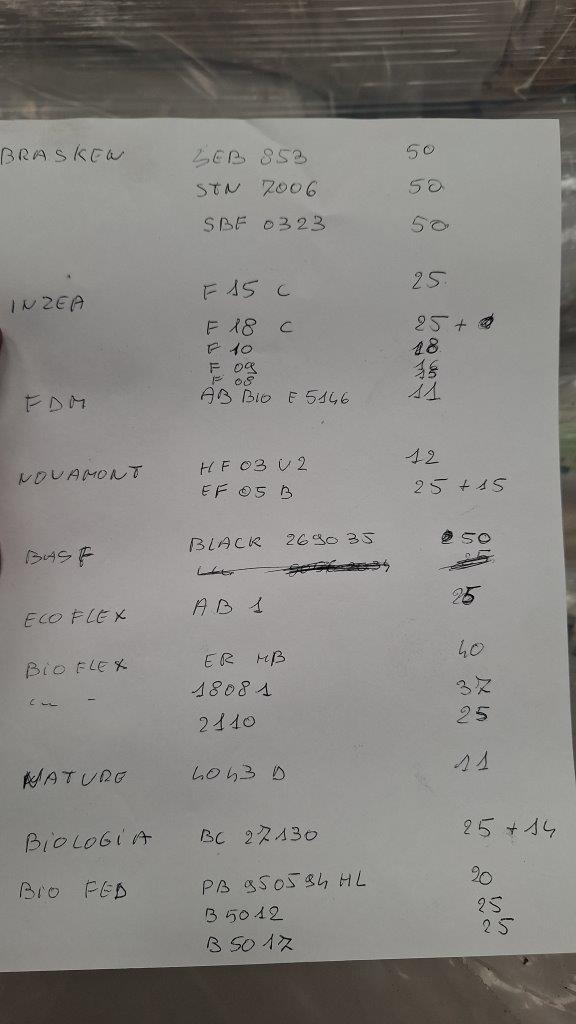 BRASKEW SEB 853 50
STN 7006 50
SBF 0323 50
INZEA F 15 C 25
F 18 C 25 +
F 10 18
F 09 16
F 08
FDM AB BIO F 5146 11
NOVAMONT HF 03 V2 12
EF 05 B 25 + 15
BASF BLACK 269035 50
ECOFLEX AB 1 25
BIOFLEX ER HB 40
18081 37
2110 25
NATURE 4043 D 11
BIOLOGIA BC 27130 25 + 14
BIO FED PB 950594 HL 20
B 5012 25
B 5017 25